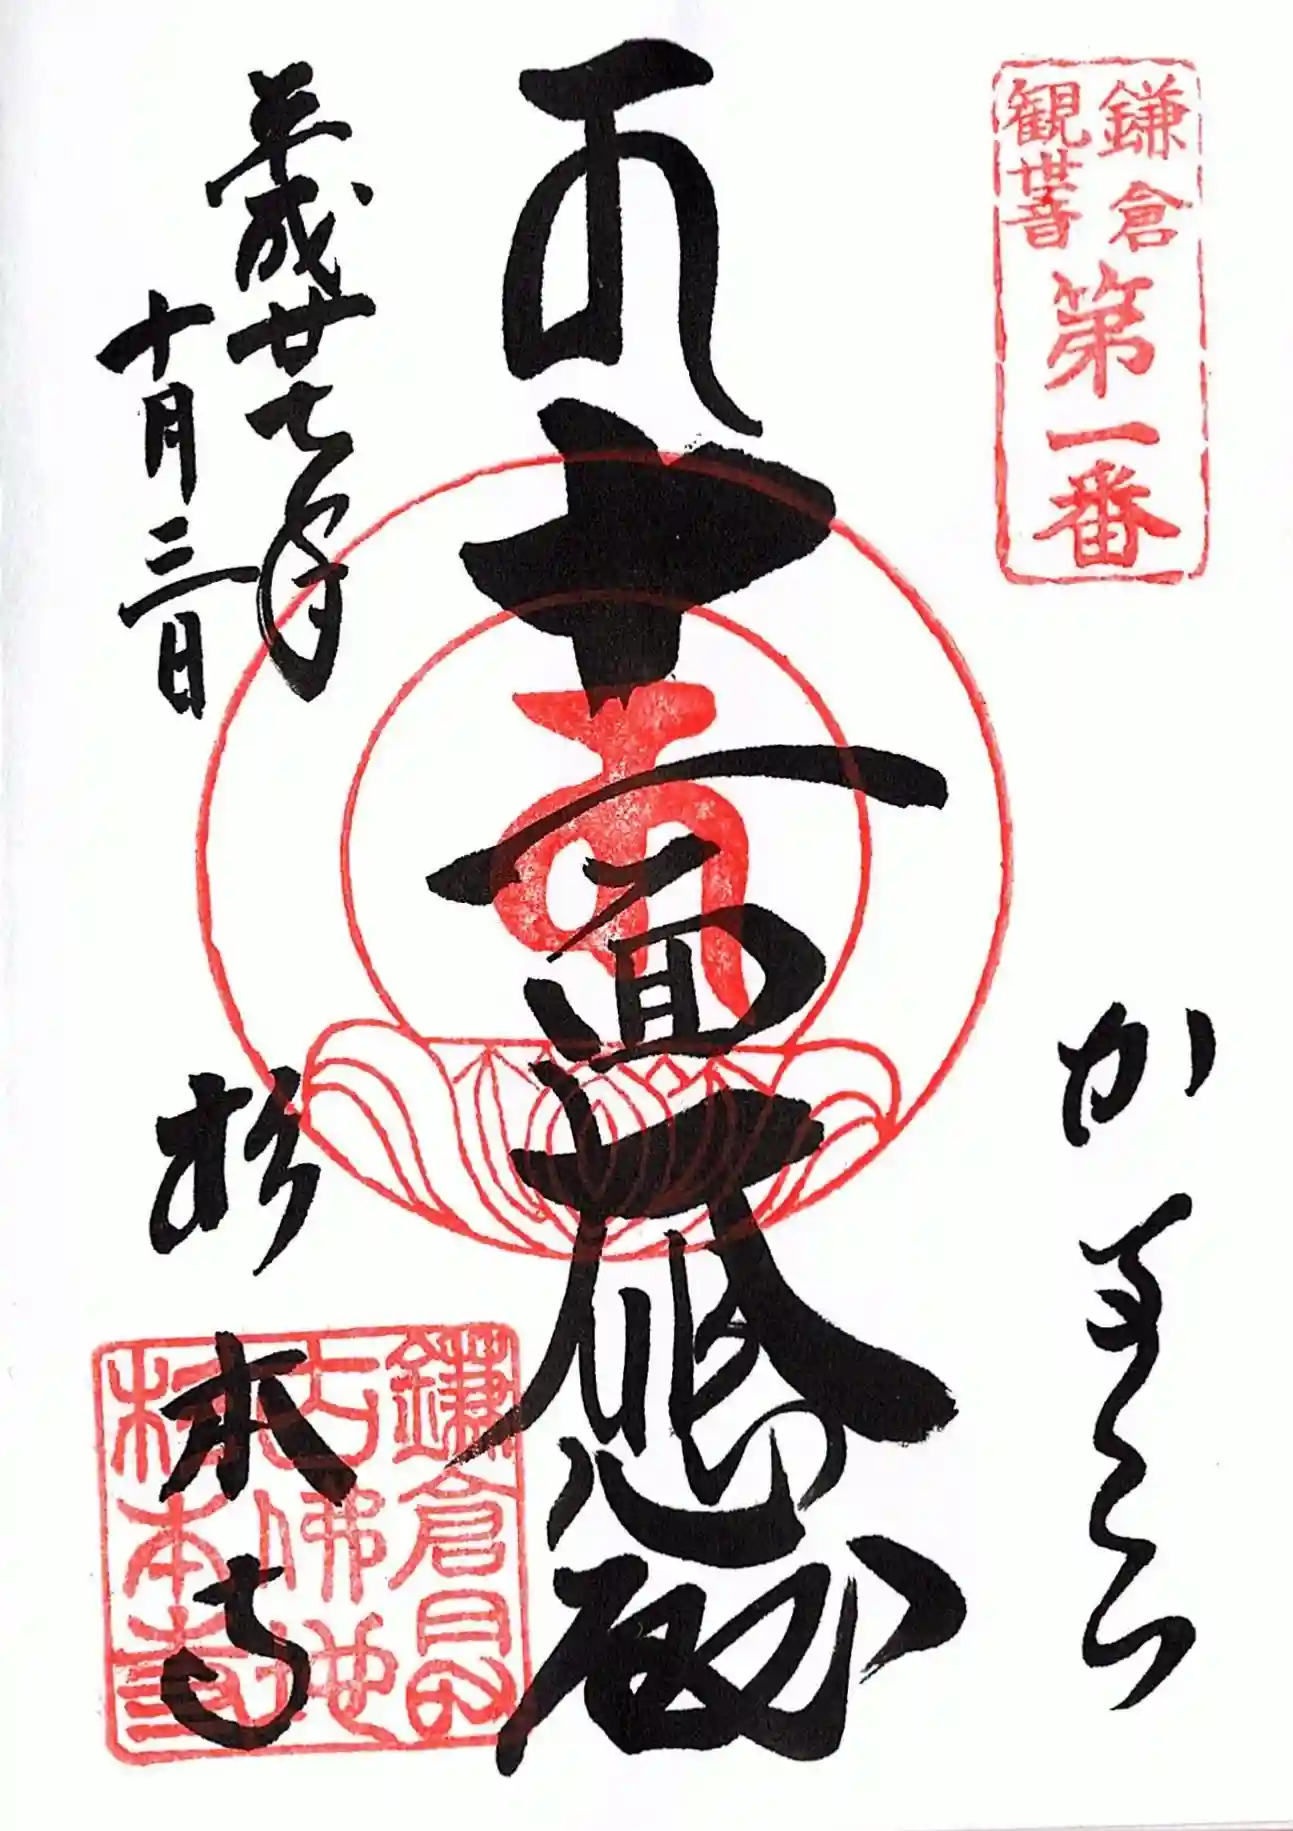 鎌倉
観世音
第一番
かまくら
十一面大悲殿
平成廿七年
十月三日
杉本寺
鎌倉
杉本寺